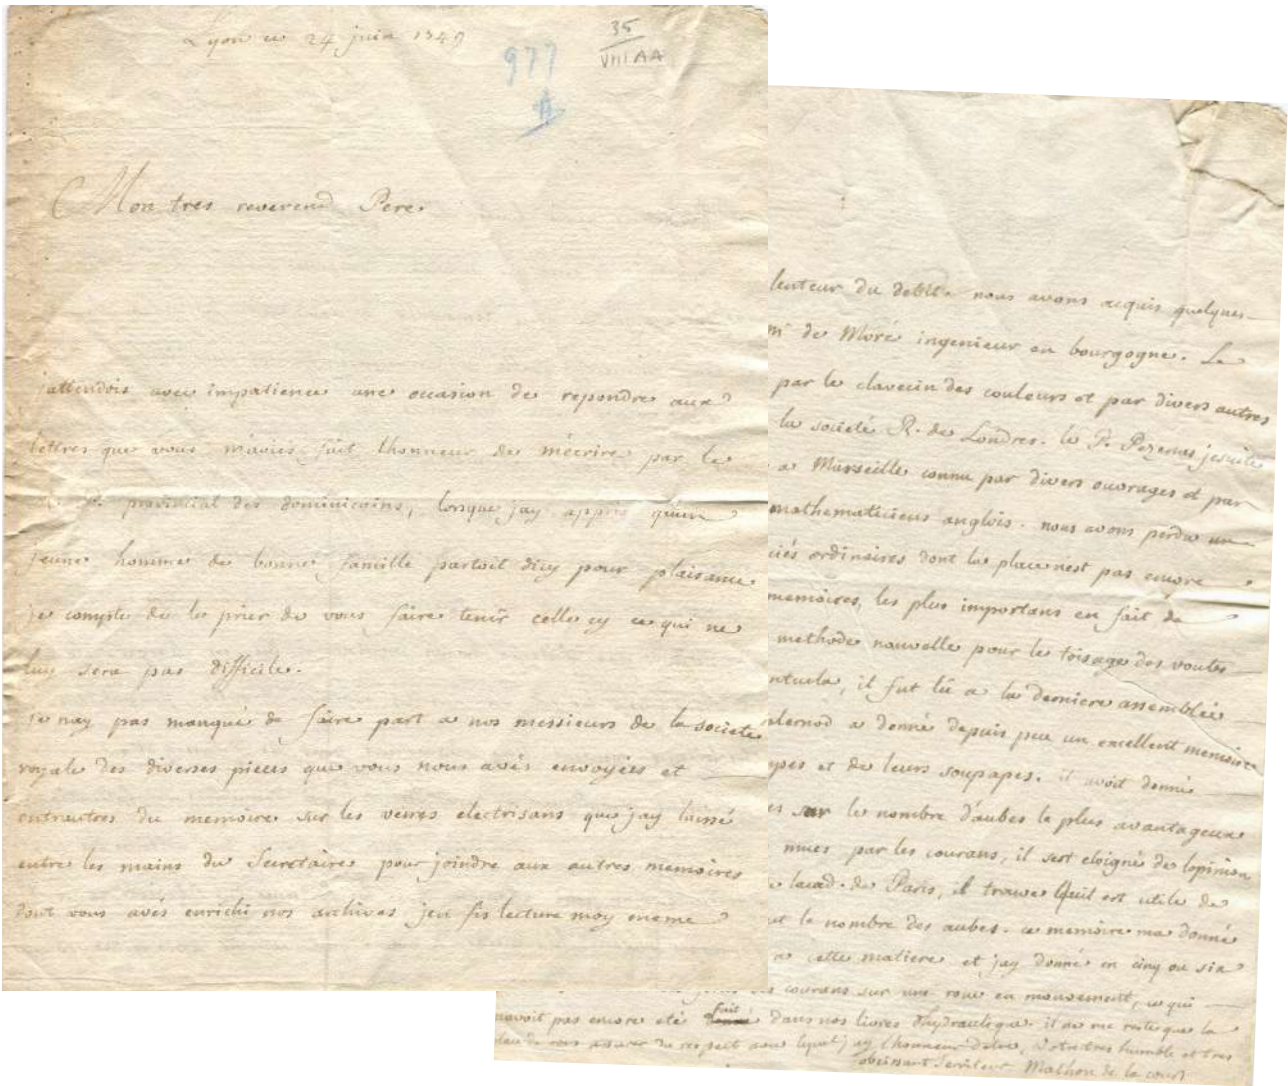 Lyon ce 24 juin 1749
35
VIII AA
977
Mon tres reverend Pere
j'attendois avec impatience une occasion de repondre aux
lettres que vous m'aviés fait l'honneur de m'écrire par le
P. provincial des dominicains, lorsque jay appris qu'un
jeune homme de bonne famille partoit d'icy pour plaisance
je compte de le prier de vous faire tenir celle cy ce qui ne
luy sera pas difficile.
je nay pas manqué de faire part a nos messieurs de la societe
royale des diverses pieces que vous nous avés envoyées et
entrautres du memoire sur les verres electrisans que jay laissé
entre les mains du Secretaire pour joindre aux autres memoires
dont vous avés enrichi nos archives, jen fis lecture moy meme
lenteur du debit. nous avons acquis quelques
de Moré ingenieur en bourgogne. Le
par le clavecin des couleurs et par divers autres
la societé R. de Londres. le P. Pezenas jesuite
a Marseille connu par divers ouvrages et par
mathematiciens anglois. nous avons perdu un
ciés ordinaires dont la place n'est pas encore
memoires, les plus importans en fait de
methode nouvelle pour le toisage des voutes
ntucla, il fut lû a la derniere assemblée
alernod a donné depuis peu un excellent memoire
pes et de leurs soupapes. il avoit donné
es sur le nombre d'aubes le plus avantageux
mues par les courans, il sest eloigné de lopinion
lacad. de Paris, il trouve quil est utile de
le nombre des aubes. ce memoire ma donné
cette matiere et jay donné en cinq ou six
courans sur une roue en mouvement, ce qui
navoit pas encore eté fait dans nos livres d'hydraulique. il ne me reste que la
de vous assurer du respect avec lequel jay l'honneur detre, Votre tres humble et tres
obeissant Serviteur Mathon de la cour